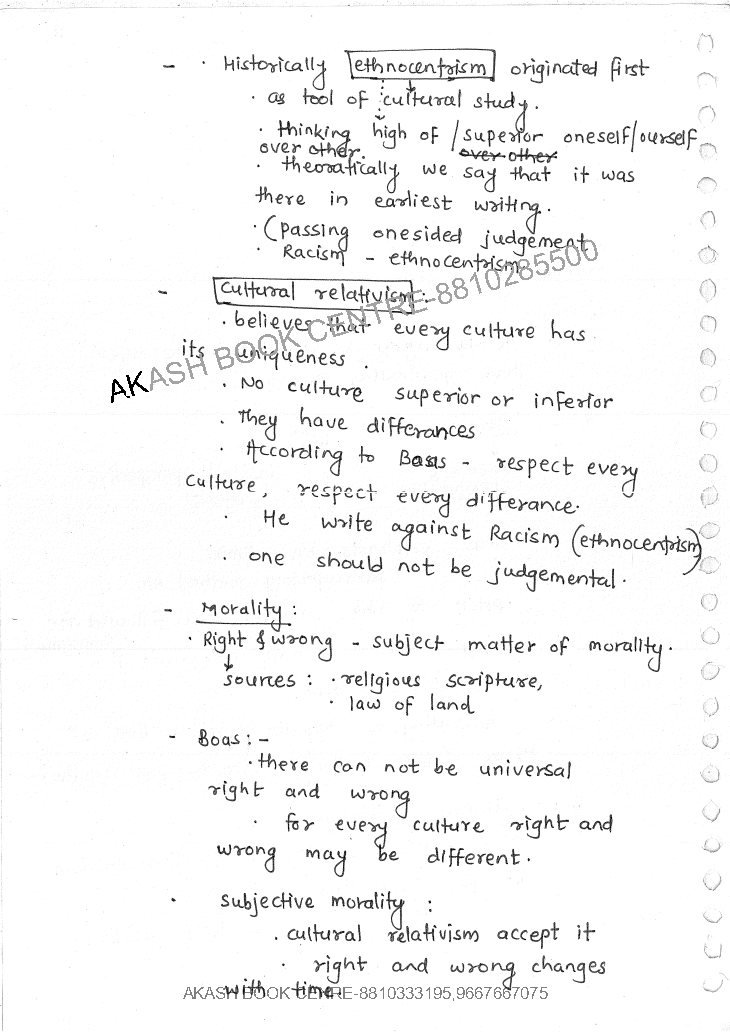 - · Historically ethnocentrism originated first
· as tool of cultural study.
· thinking high of / superior oneself/ourself
over other. over other
· theoratically we say that it was
there in earliest writing.
· (passing onesided judgement
· Racism - ethnocentrism
- Cultural relativism :
· believes that every culture has
its uniqueness .
AKASH BOOK CENTRE-8810285500
· No culture superior or inferior
· They have differances
· According to Boas - respect every
culture, respect every differance.
· He write against Racism (ethnocentrism)
· one should not be judgemental.
- Morality :
· Right & wrong - subject matter of morality.
sources : · religious scripture,
· law of land
- Boas : -
· there can not be universal
right and wrong
· for every culture right and
wrong may be different.
· subjective morality :
· cultural relativism accept it
· right and wrong changes
with time
AKASH BOOK CENTRE-8810333195,9667667075